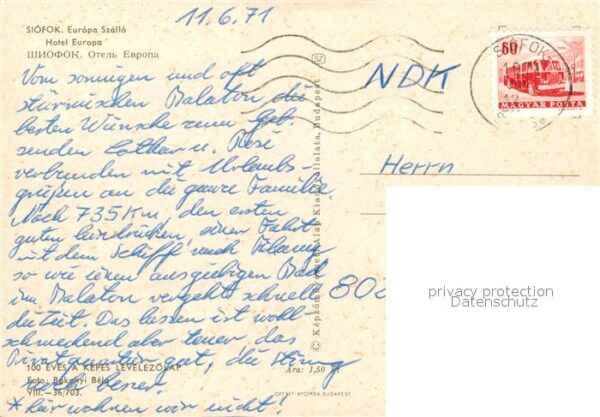 11.6.71
SIÓFOK. Európa Szálló
Hotel Europa
ШИОФОК. Отель Европа
Vom sonnigen und oft
stürmischen Balaton die
besten Wünsche zum Geb.
senden Lothar u. Rosi
verbunden mit Urlaubs-
grüßen an die ganze Familie
Nach 735 Km, den ersten
guten Eindrücken, einer Fahrt
mit dem Schiff nach Tihany
so wie einem ausgiebigen Bad
im Balaton vergeht schnell
die Zeit. Das Essen ist wohl-
schmeckend aber teuer, das
Privatquartier gut, die Stimmung
noch besser.
* hier wohnen wir nicht!
100 ÉVES A KÉPES LEVELEZŐLAP
Foto: Bakonyi Béla
VIII.—36/703.
© Képzőművészeti Alap Kiadóvállalata, Budapest
Ára: 1,50 Ft
OFFSET-NYOMDA BUDAPEST
NDK
Herrn
802
60
MAGYAR POSTA
SIÓFOK
privacy protection
Datenschutz